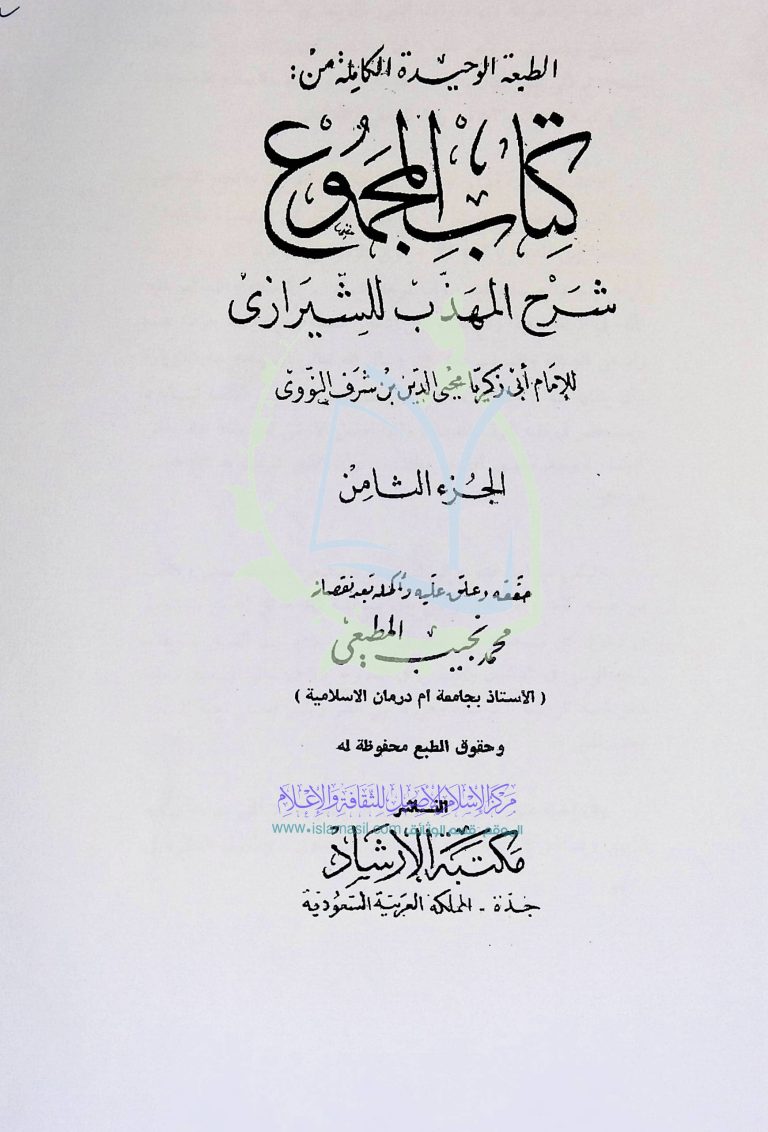 الطبعة الوحيدة الكاملة من:
كِتَابُ المجمُوع
شَرْح المهَذّب للشِّيرَازى
للإمَام أبى زكريَّا محيى الدّين بنْ شَرَف النّووى
الجُزء الثامِنْ
حققه وعلق عليه وأكمله بعد نقصانه
محمد نجيب المطيعى
( الاستاذ بجامعة ام درمان الاسلامية )
وحقوق الطبع محفوظة له
مركز الإسلام الأصيل للثقافة والإعلام
الناشر
الموقع: قسم الوثائق www.islamasil.com
مكتبة الإرشاد
جدّة - المملكة العربيّة السّعوديّة